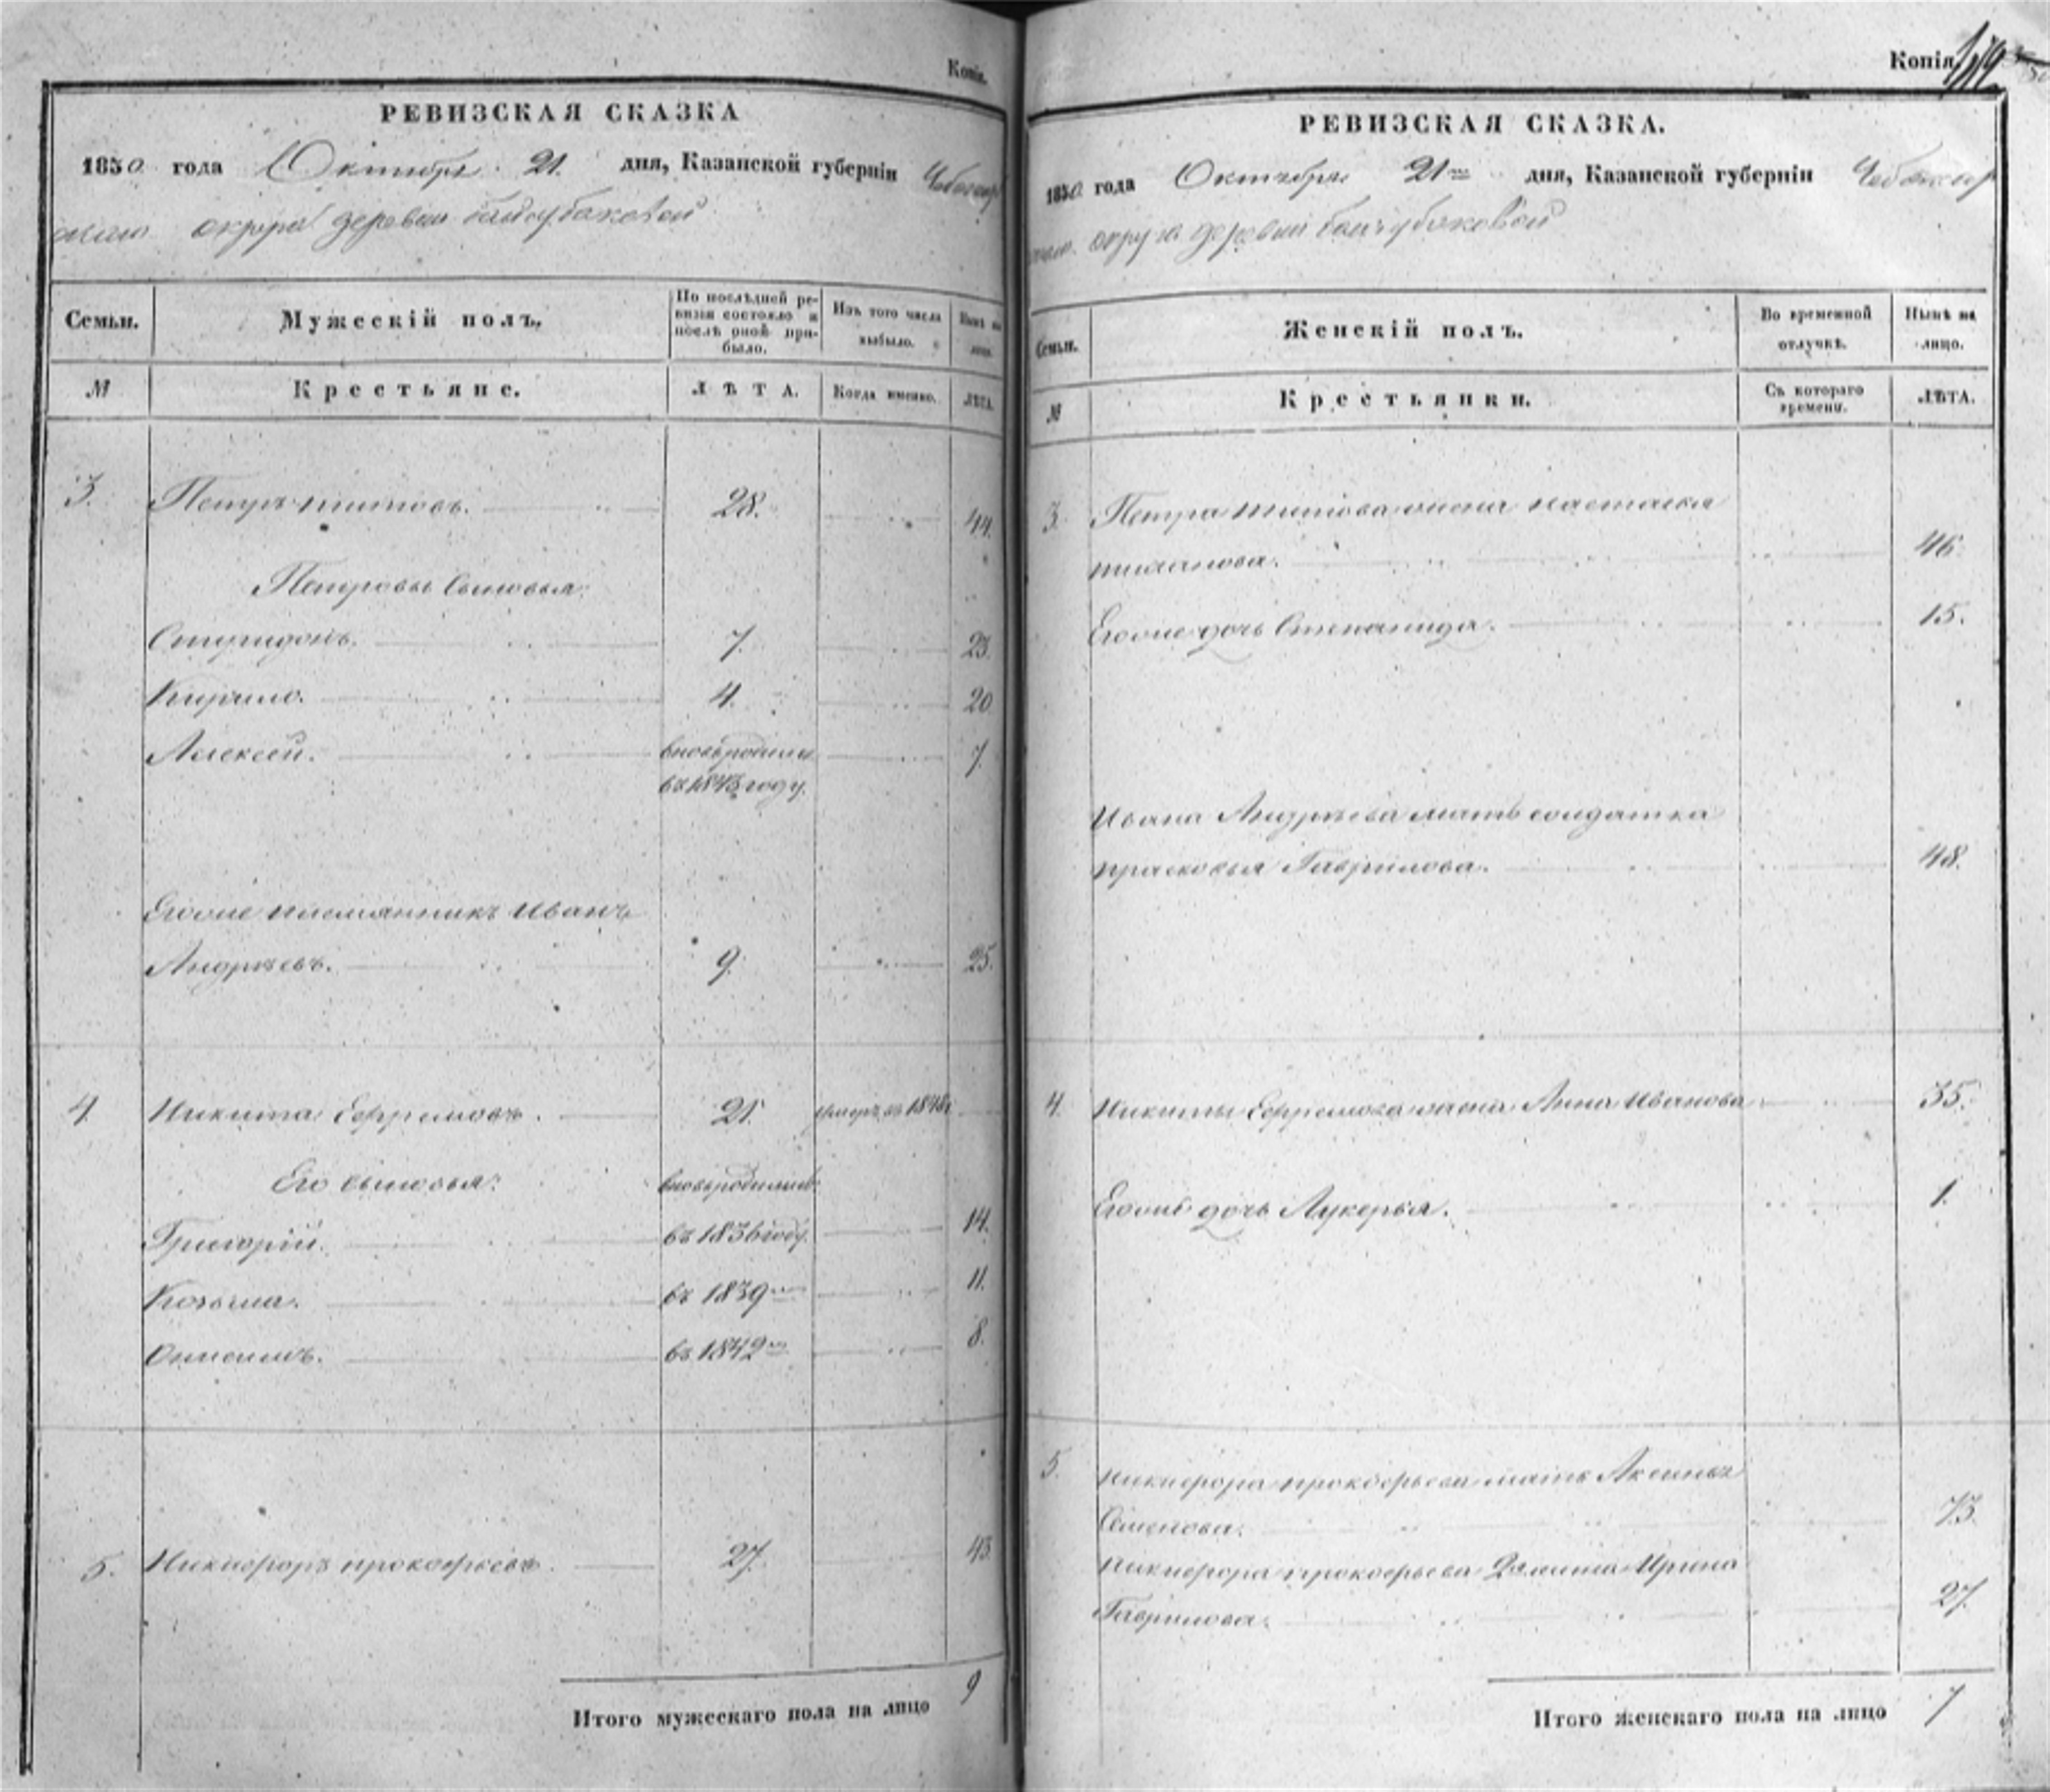 Копія.
РЕВИЗСКАЯ СКАЗКА
1850 года Октября 21 дня, Казанской губерніи Чебоксар
скаго округа деревни
Семьи.
Мужескій полъ.
По послѣдней ре-
визіи состояло и
послѣ оной при-
было.
Изъ того числа
выбыло.
Нынѣ на
лицо.
№
Крестьяне.
ЛѢТА.
Когда именно.
ЛѢТА.
3. Петръ Титовъ. 28. 44.
Петровы сыновья:
Спиридонъ. 7. 23.
Кирило. 4. 20
Алексѣй. вновь родился 7.
въ 1843 году.
Егоже племянникъ Иванъ
Андрѣевъ. 9. 25.
4. Никита Ефремовъ. 21. умеръ въ
Его сыновья: вновь родились:
Григорій. въ 1836 году. 14.
Козьма. въ 1839 11.
въ 1842 8.
5. Никифоръ Прокофьевъ. 27. 43.
Итого мужескаго пола на лицо 9
Копія
РЕВИЗСКАЯ СКАЗКА.
1850 года Октября 21 дня, Казанской губерніи Чебоксар
скаго округа деревни
Семьи.
Женскій полъ.
Во временной
отлучкѣ.
Нынѣ на
лицо.
№
Крестьянки.
Съ котораго
времени.
ЛѢТА.
3. Петра Титова жена Настасья
46.
Егоже дочь Степанида. 15.
Ивана Андрѣева мать солдатка
Прасковья Гаврилова. 48.
4. Никиты Ефремова жена Анна Иванова 35.
Егоже дочь Лукерья. 1.
5. Никифора Прокофьева мать Аксинья
Семенова. 73.
Никифора Прокофьева 2 жена Ирина
Гаврилова. 27.
Итого женскаго пола на лицо 7